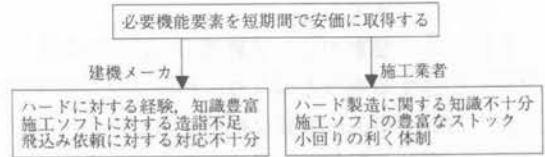 必要機能要素を短期間で安価に取得する
建機メーカ
施工業者
ハードに対する経験，知識豊富
施工ソフトに対する造詣不足
飛込み依頼に対する対応不十分
ハード製造に関する知識不十分
施工ソフトの豊富なストック
小回りの利く体制